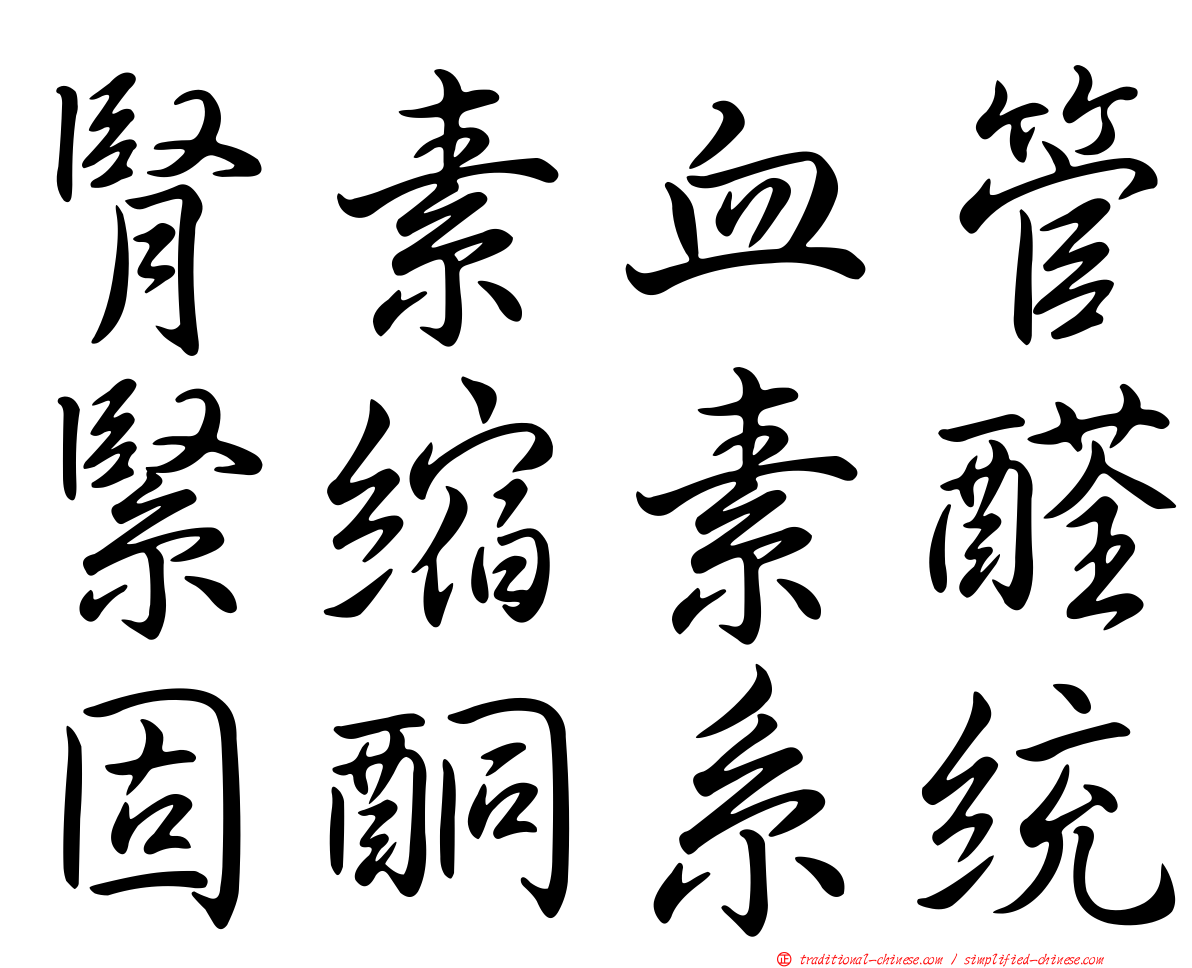 腎素血管
緊縮素醛
固酮系統
㊣ traditional-chinese.com / simplified-chinese.com